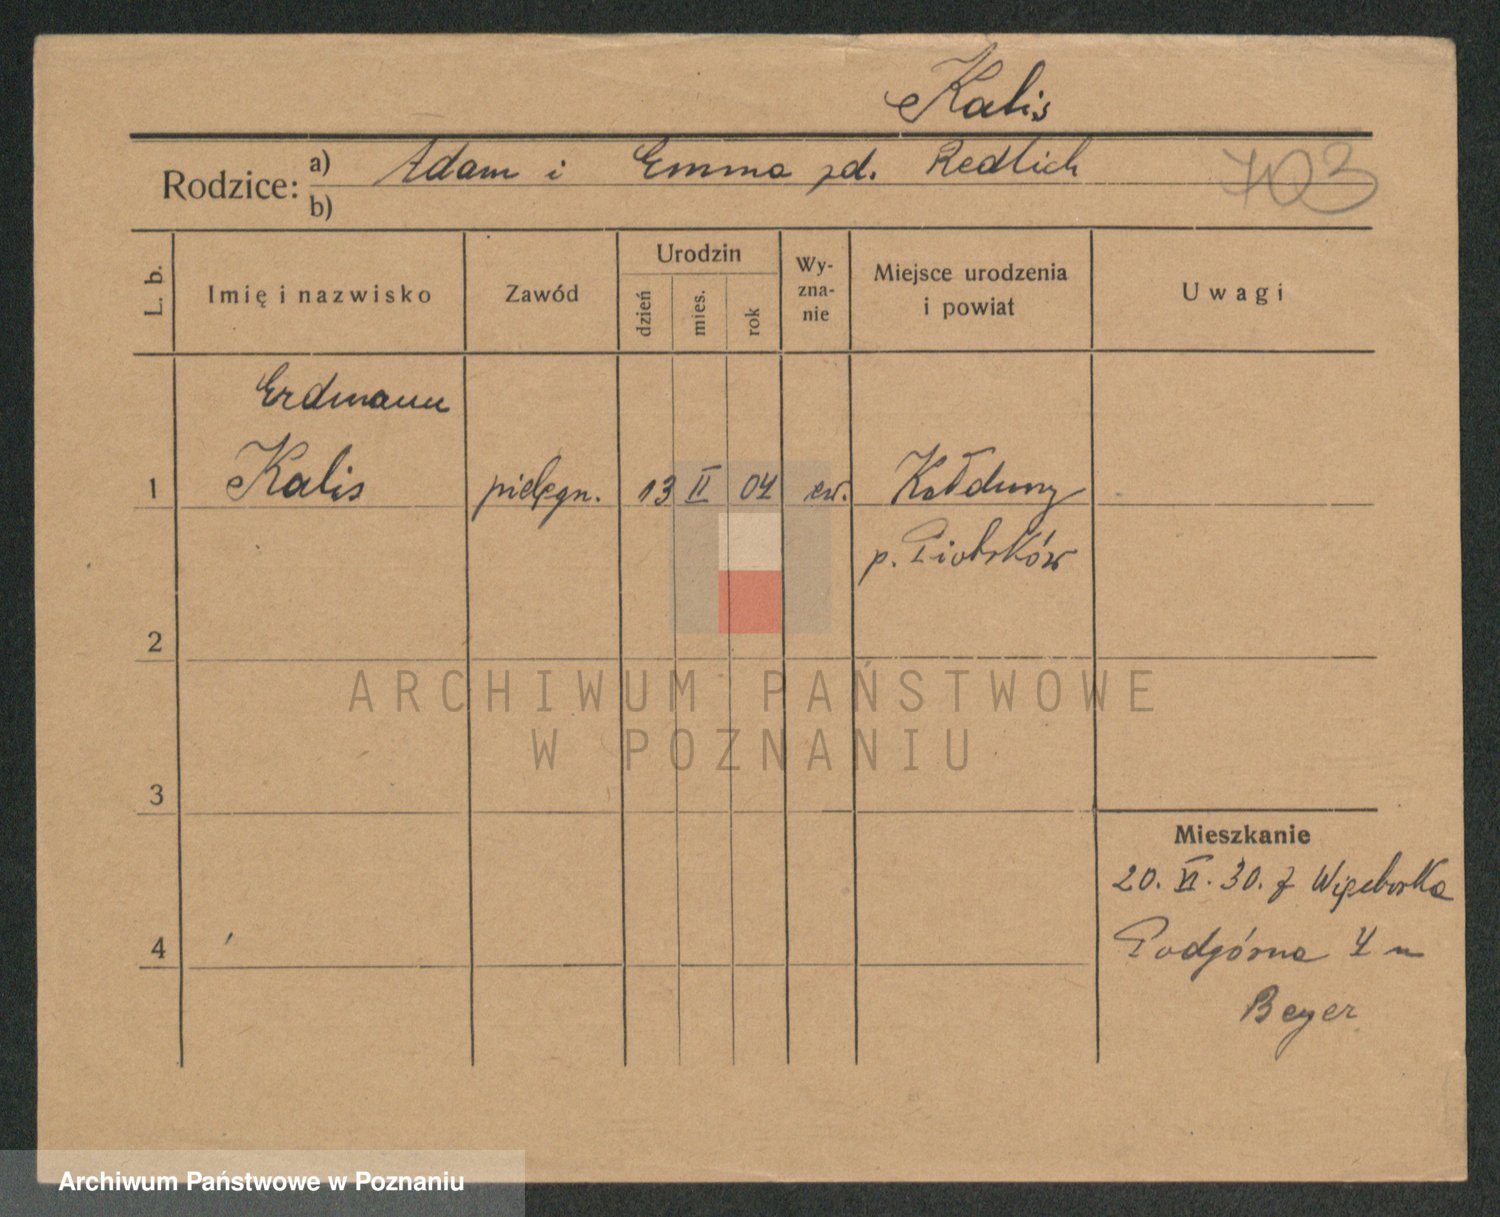 Kalis
Rodzice: a) Adam i Emma zd. Redlich
b)
703
L. b. Imię i nazwisko Zawód Urodzin dzień mies. rok Wy-zna-nie Miejsce urodzenia i powiat Uwagi
Erdmann
1 Kalis pielęgn. 13 II 04 ew. Kałduny
p. Piotrków
2
ARCHIWUM PAŃSTWOWE
W POZNANIU
3
Mieszkanie
20. VI. 30. z Więcborka
4 Podgórna 4 u
Beyer
Archiwum Państwowe w Poznaniu